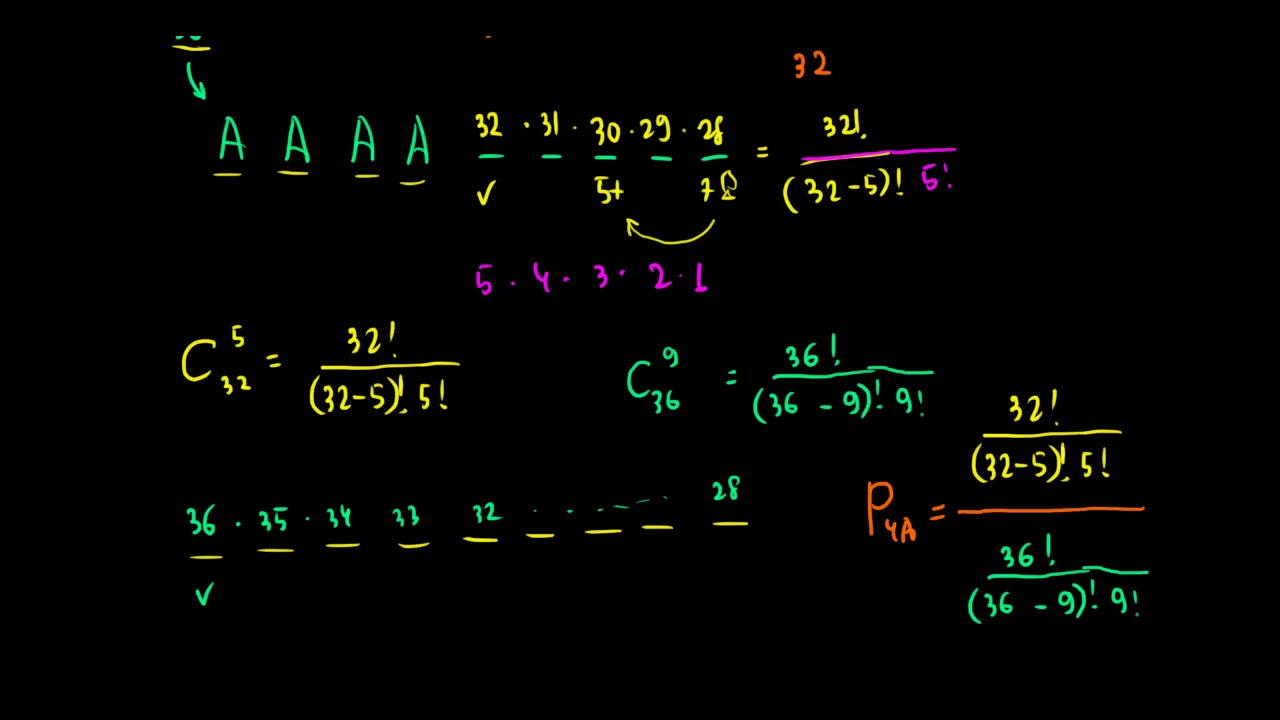 32
A A A A 32 · 31 · 30 · 29 · 28 = 32! / (32-5)! 5!
✓ 5+
5 · 4 · 3 · 2 · 1
C₃₂⁵ = 32! / (32-5)! 5!
C₃₆⁹ = 36! / (36-9)! 9!
36 · 35 · 34 33 32 · · · – – · · 28
✓
P₄ₐ = 32! / (32-5)! 5! / 36! / (36-9)! 9!